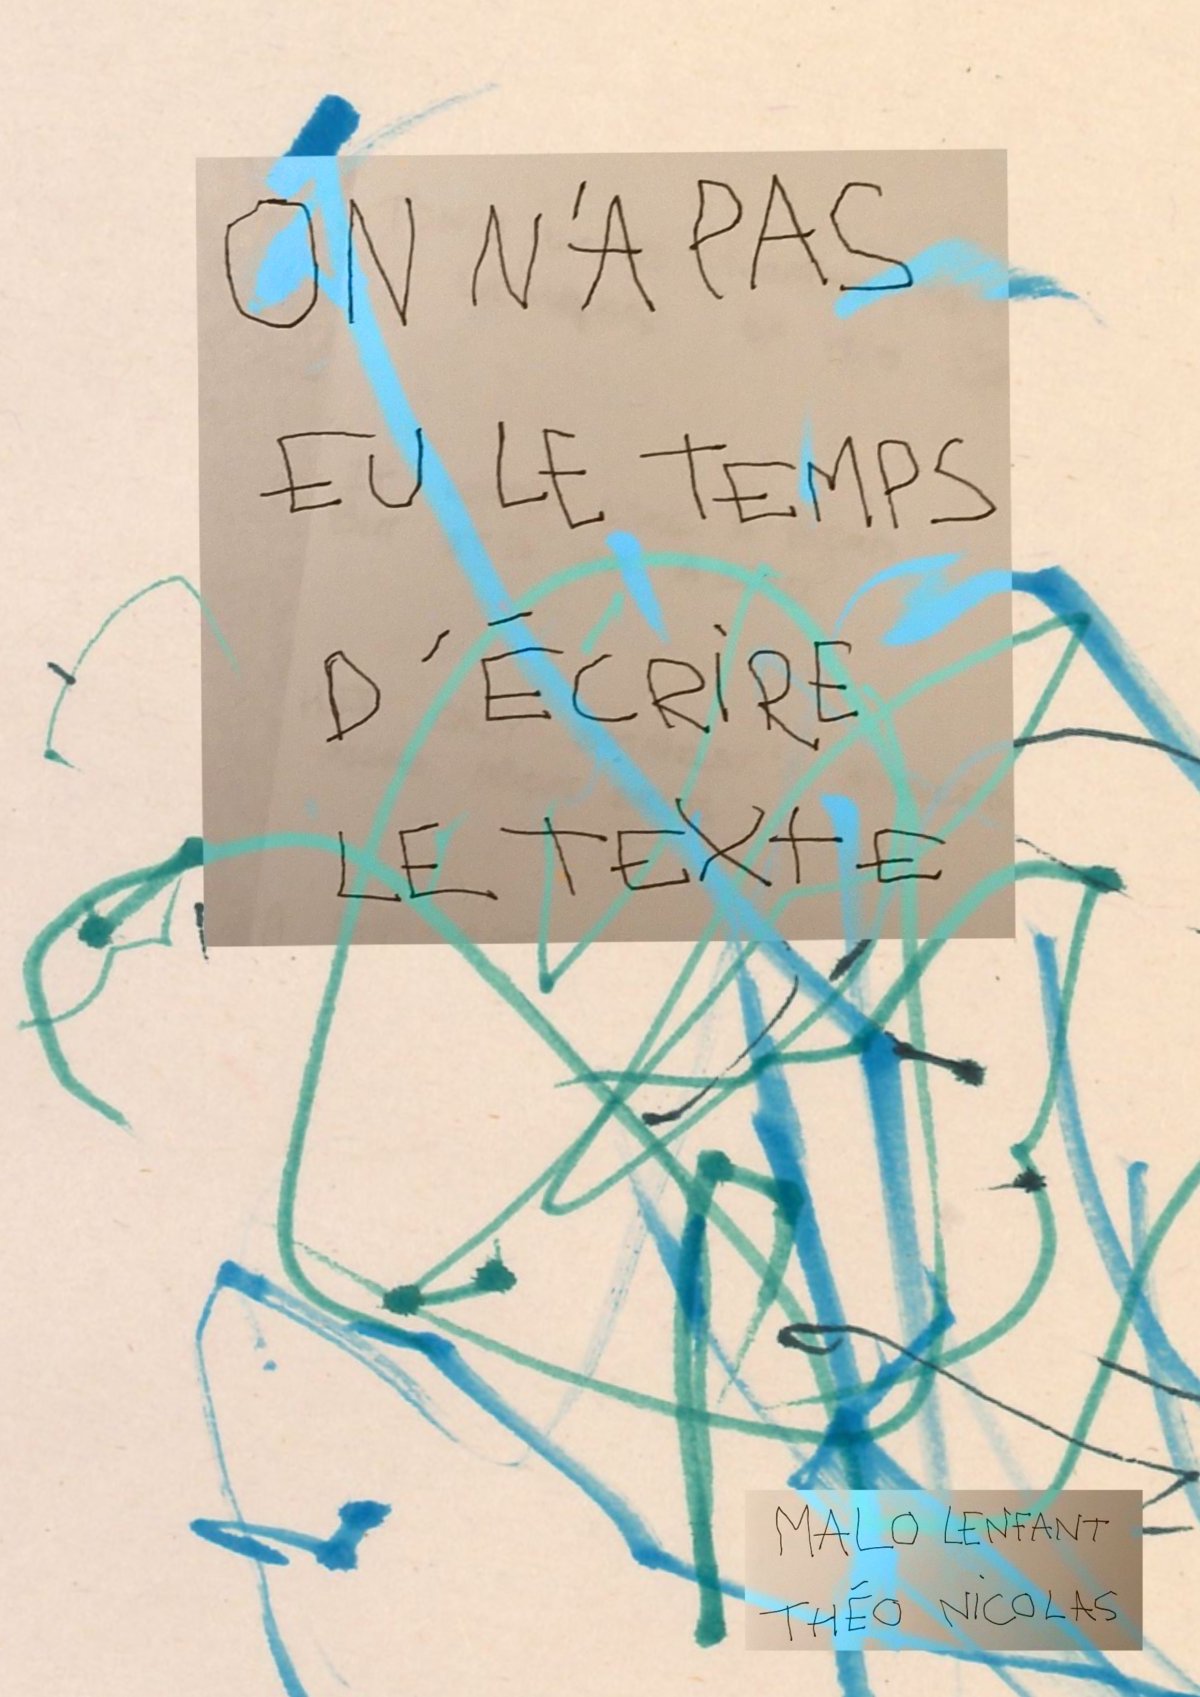 ON N'A PAS
EU LE TEMPS
D'ÉCRIRE
LE TEXTE
MALO LENFANT
THÉO NICOLAS